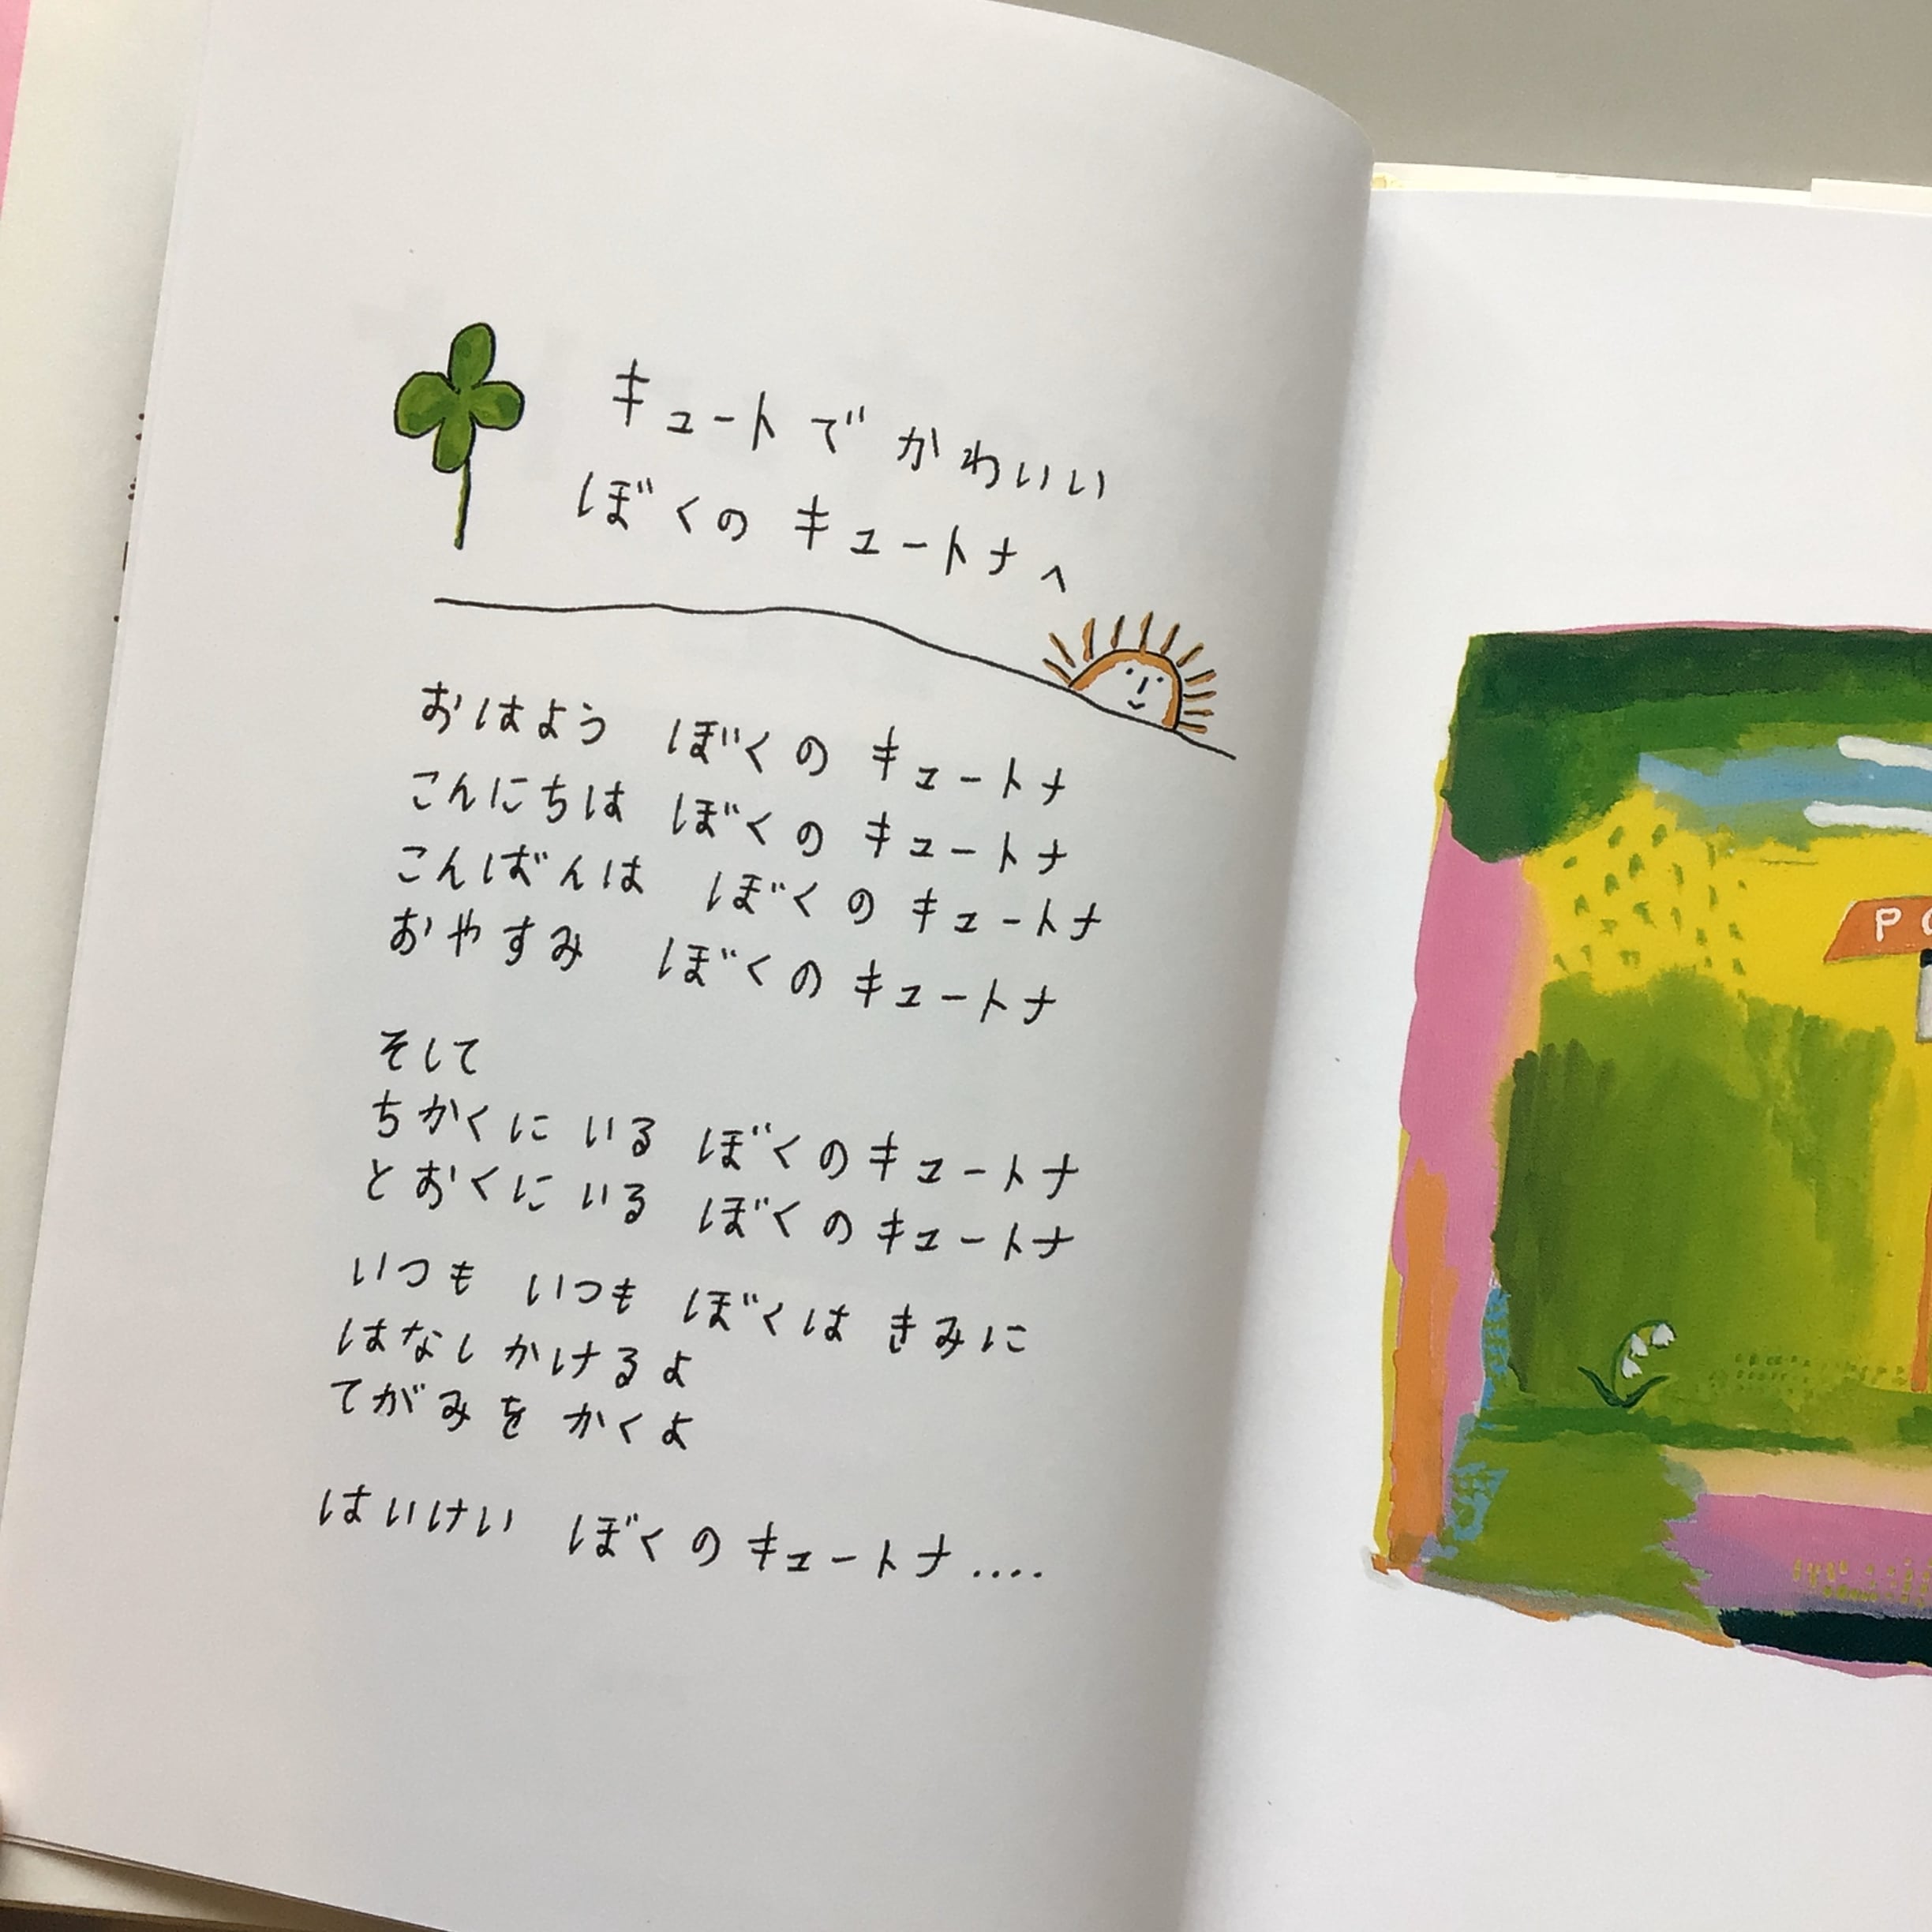 キュートで かわいい
ぼくの キュートナへ
おはよう ぼくの キュートナ
こんにちは ぼくの キュートナ
こんばんは ぼくの キュートナ
おやすみ ぼくの キュートナ
そして
ちかくに いる ぼくのキュートナ
とおくに いる ぼくのキュートナ
いつも いつも ぼくは きみに
はなしかけるよ
てがみを かくよ
はいけい ぼくの キュートナ....